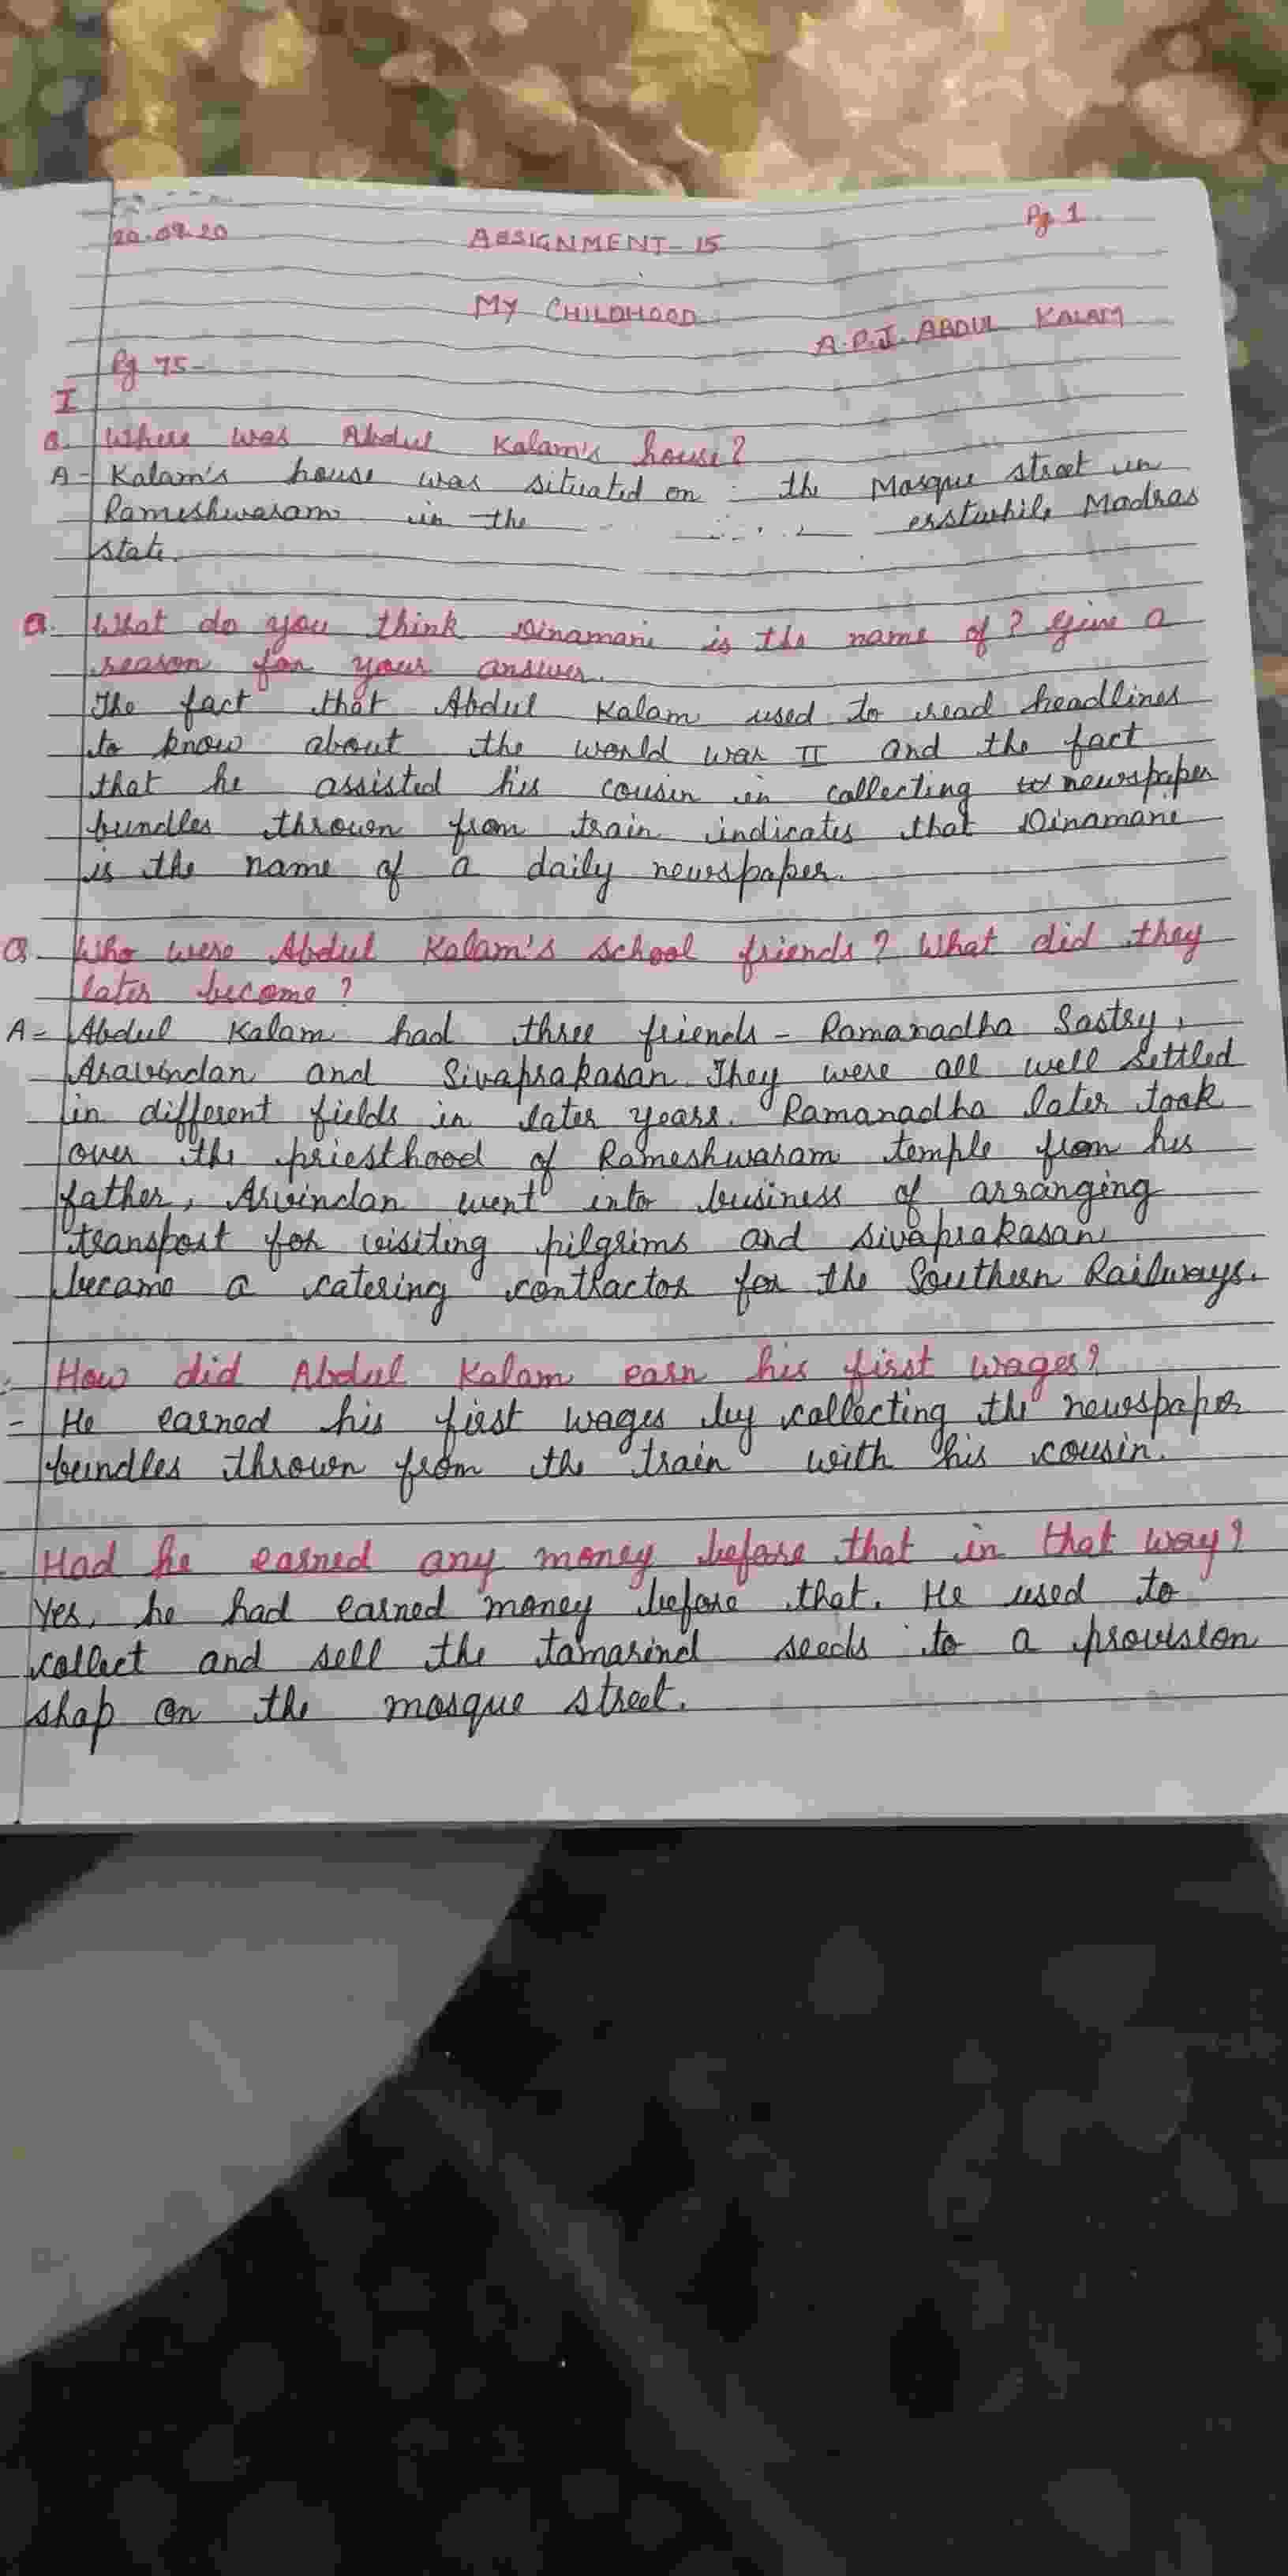 20.09.20 ASSIGNMENT-15 Pg 1
MY CHILDHOOD
A.P.J. ABDUL KALAM
Pg 75-
I
Q. Where was Abdul Kalam's house?
A- Kalam's house was situated on the Mosque street in
Rameshwaram in the erstwhile Madras
state.
Q. What do you think Dinamani is the name of? Give a
reason for your answer.
The fact that Abdul Kalam used to read headlines
to know about the world war II and the fact
that he assisted his cousin in collecting newspaper
bundles thrown from train indicates that Dinamani
is the name of a daily newspaper.
Q. Who were Abdul Kalam's school friends? What did they
later become?
A- Abdul Kalam had three friends - Ramanadha Sastry,
Aravindan and Sivaprakasan. They were all well settled
in different fields in later years. Ramanadha later took
over the priesthood of Rameshwaram temple from his
father, Arvindan went into business of arranging
transport for visiting pilgrims and sivaprakasan
became a catering contractor for the Southern Railways.
How did Abdul Kalam earn his first wages?
- He earned his first wages by collecting the newspaper
bundles thrown from the train with his cousin.
Had he earned any money before that in that way?
Yes, he had earned money before that. He used to
collect and sell the tamarind seeds to a provision
shop on the mosque street.